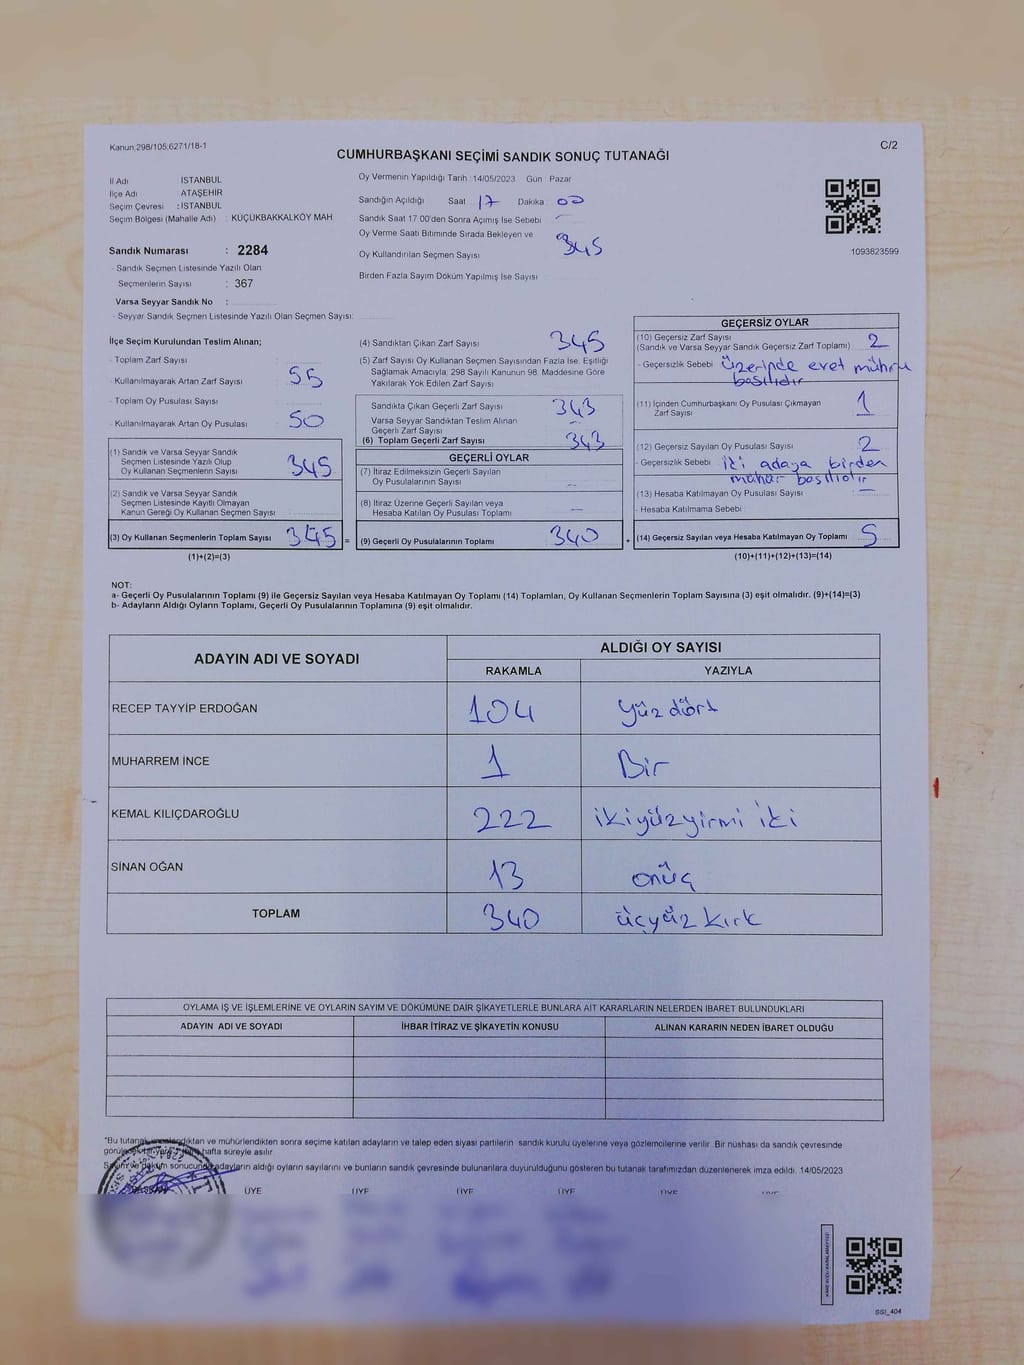 Kanun:298/105;6271/18-1
C/2
CUMHURBAŞKANI SEÇİMİ SANDIK SONUÇ TUTANAĞI
İl Adı : İSTANBUL
İlçe Adı : ATAŞEHİR
Seçim Çevresi : İSTANBUL
Seçim Bölgesi (Mahalle Adı) : KÜÇÜKBAKKALKÖY MAH.
Sandık Numarası : 2284
- Sandık Seçmen Listesinde Yazılı Olan
Seçmenlerin Sayısı : 367
Varsa Seyyar Sandık No :
- Seyyar Sandık Seçmen Listesinde Yazılı Olan Seçmen Sayısı:
Oy Vermenin Yapıldığı Tarih :14/05/2023 Gün : Pazar
Sandığın Açıldığı Saat : 17 Dakika : 00
Sandık Saat 17.00'den Sonra Açımış İse Sebebi
Oy Verme Saati Bitiminde Sırada Bekleyen ve
Oy Kullandırılan Seçmen Sayısı 345
Birden Fazla Sayım Döküm Yapılmış İse Sayısı
1093823599
İlçe Seçim Kurulundan Teslim Alınan;
- Toplam Zarf Sayısı :
- Kullanılmayarak Artan Zarf Sayısı : 55
- Toplam Oy Pusulası Sayısı :
- Kullanılmayarak Artan Oy Pusulası : 50
(1) Sandık ve Varsa Seyyar Sandık
Seçmen Listesinde Yazılı Olup
Oy Kullanan Seçmenlerin Sayısı 345
(2) Sandık ve Varsa Seyyar Sandık
Seçmen Listesinde Kayıtlı Olmayan
Kanun Gereği Oy Kullanan Seçmen Sayısı
(3) Oy Kullanan Seçmenlerin Toplam Sayısı 345 =
(1)+(2)=(3)
(4) Sandıktan Çıkan Zarf Sayısı 345
(5) Zarf Sayısı Oy Kullanan Seçmen Sayısından Fazla İse, Eşitliği
Sağlamak Amacıyla; 298 Sayılı Kanunun 98. Maddesine Göre
Yakılarak Yok Edilen Zarf Sayısı
Sandıkta Çıkan Geçerli Zarf Sayısı 343
Varsa Seyyar Sandıktan Teslim Alınan
Geçerli Zarf Sayısı
(6) Toplam Geçerli Zarf Sayısı 343
GEÇERLİ OYLAR
(7) İtiraz Edilmeksizin Geçerli Sayılan
Oy Pusulalarının Sayısı –
(8) İtiraz Üzerine Geçerli Sayılan veya
Hesaba Katılan Oy Pusulası Toplamı –
(9) Geçerli Oy Pusulalarının Toplamı 340 +
GEÇERSİZ OYLAR
(10) Geçersiz Zarf Sayısı
(Sandık ve Varsa Seyyar Sandık Geçersiz Zarf Toplamı) : 2
- Geçersizlik Sebebi : üzerinde evet mührü
basılıdır
(11) İçinden Cumhurbaşkanı Oy Pusulası Çıkmayan
Zarf Sayısı 1
(12) Geçersiz Sayılan Oy Pusulası Sayısı : 2
- Geçersizlik Sebebi : iki adaya birden
mühür basılıdır
(13) Hesaba Katılmayan Oy Pusulası Sayısı : –
- Hesaba Katılmama Sebebi :
(14) Geçersiz Sayılan veya Hesaba Katılmayan Oy Toplamı 5
(10)+(11)+(12)+(13)=(14)
NOT:
a- Geçerli Oy Pusulalarının Toplamı (9) ile Geçersiz Sayılan veya Hesaba Katılmayan Oy Toplamı (14) Toplamları, Oy Kullanan Seçmenlerin Toplam Sayısına (3) eşit olmalıdır. (9)+(14)=(3)
b- Adayların Aldığı Oyların Toplamı, Geçerli Oy Pusulalarının Toplamına (9) eşit olmalıdır.
ADAYIN ADI VE SOYADI
ALDIĞI OY SAYISI
RAKAMLA YAZIYLA
RECEP TAYYİP ERDOĞAN 104 yüz dört
MUHARREM İNCE 1 Bir
KEMAL KILIÇDAROĞLU 222 ikiyüzyirmi iki
SİNAN OĞAN 13 onüç
TOPLAM 340 üçyüz kırk
OYLAMA İŞ VE İŞLEMLERİNE VE OYLARIN SAYIM VE DÖKÜMÜNE DAİR ŞİKAYETLERLE BUNLARA AİT KARARLARIN NELERDEN İBARET BULUNDUKLARI
ADAYIN ADI VE SOYADI İHBAR İTİRAZ VE ŞİKAYETİN KONUSU ALINAN KARARIN NEDEN İBARET OLDUĞU
*Bu tutanak imzalandıktan ve mühürlendikten sonra seçime katılan adayların ve talep eden siyasi partilerin sandık kurulu üyelerine veya gözlemcilerine verilir. Bir nüshası da sandık çevresinde
hafta süreyle asılır.
Sayım ve döküm sonucunda adayların aldığı oyların sayılarını ve bunların sandık çevresinde bulunanlara duyurulduğunu gösteren bu tutanak tarafımızdan düzenlenerek imza edildi. 14/05/2023
BAŞKAN ÜYE ÜYE ÜYE ÜYE ÜYE ÜYE
SSİ_404